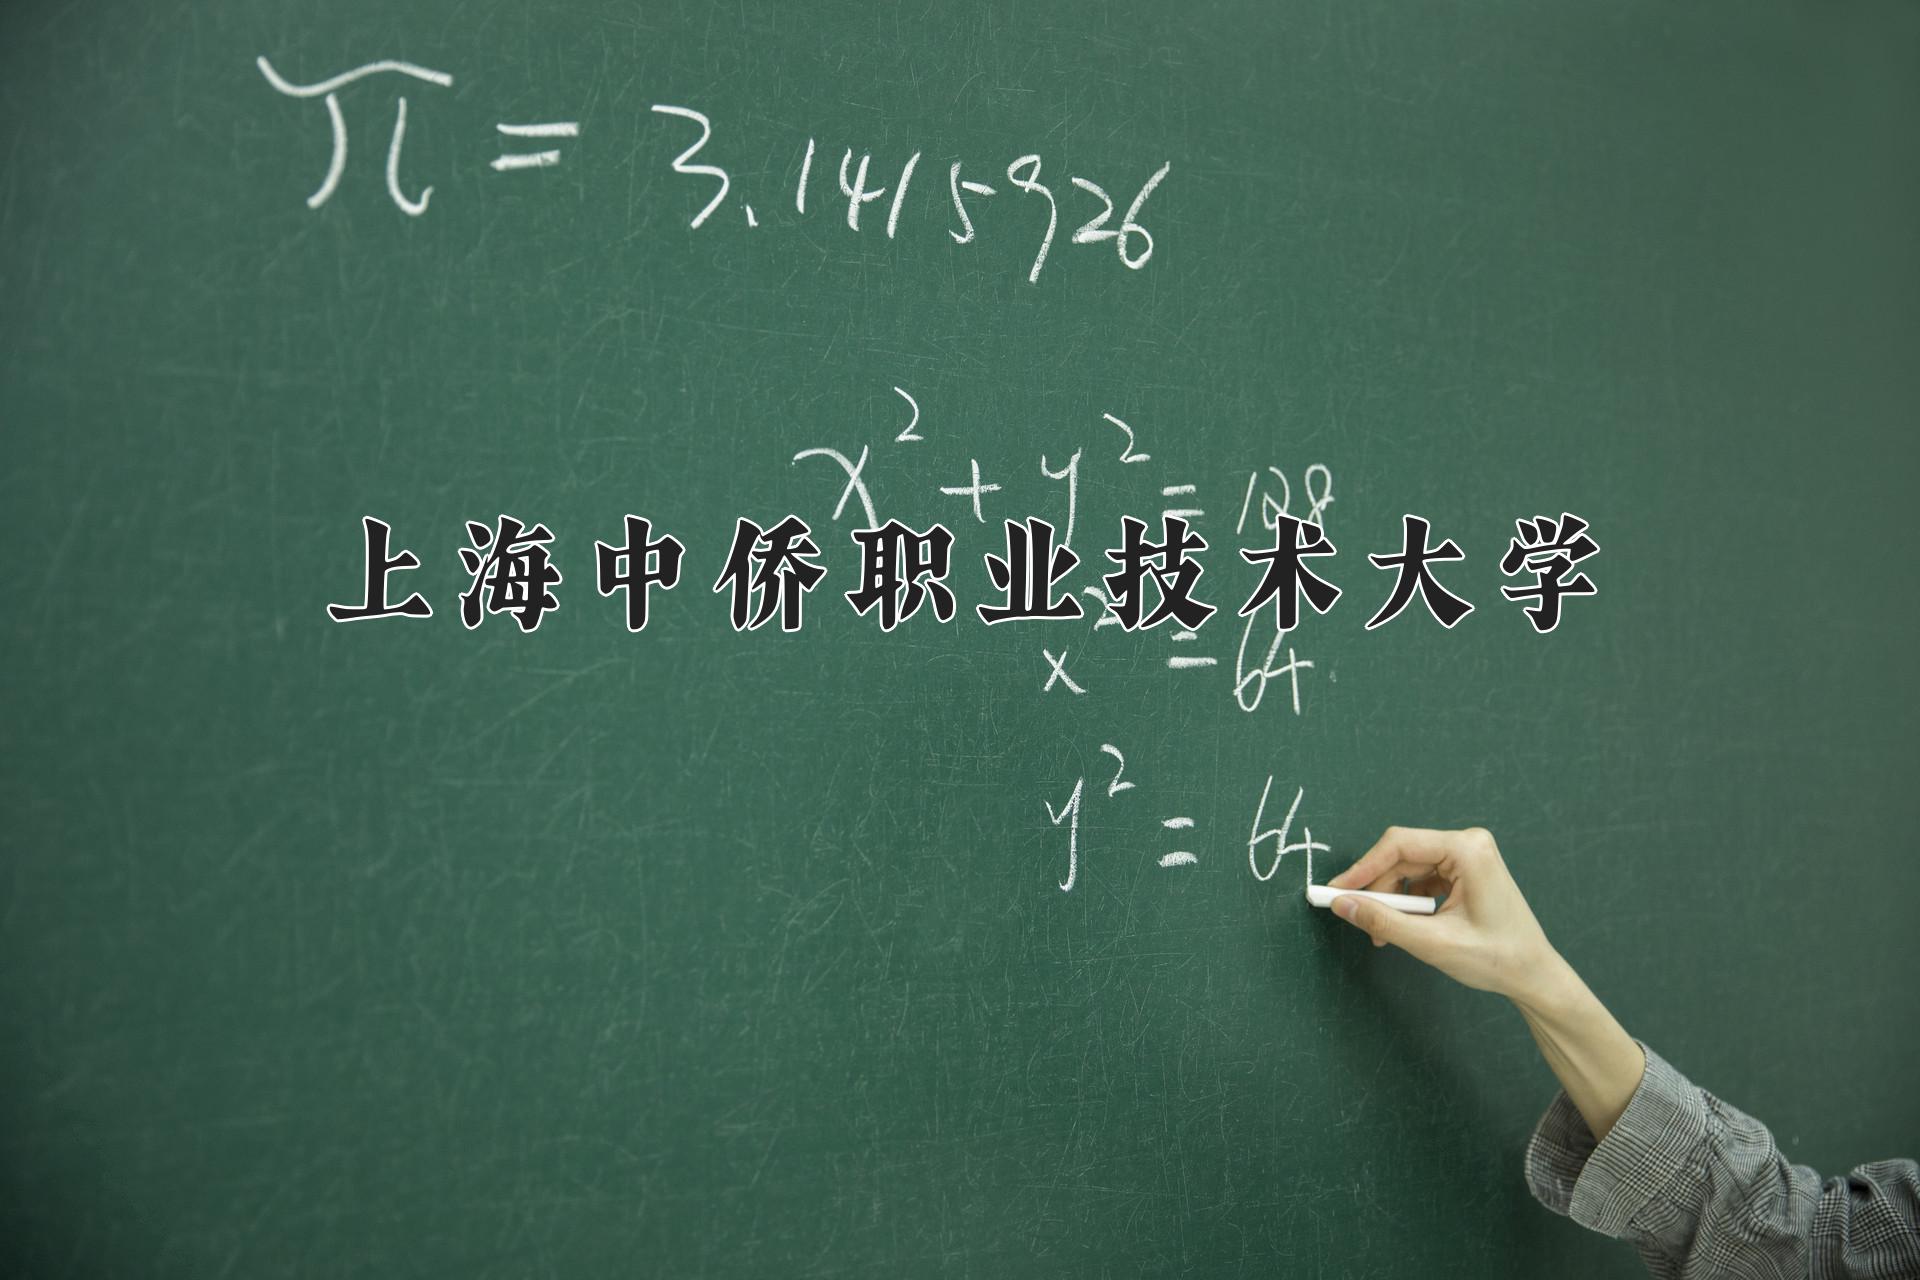 π = 3.1415926
x² + y² = 128
上海中侨职业技术大学
x² = 64
y² = 64